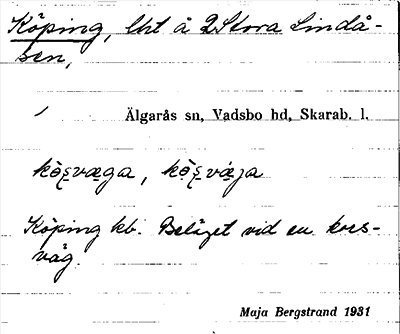 Köping, lht å 2 Stora Lindå-
sen,
Älgarås sn, Vadsbo hd, Skarab. l.
Köping kb. Beläget vid en kors-
väg.
Maja Bergstrand 1931